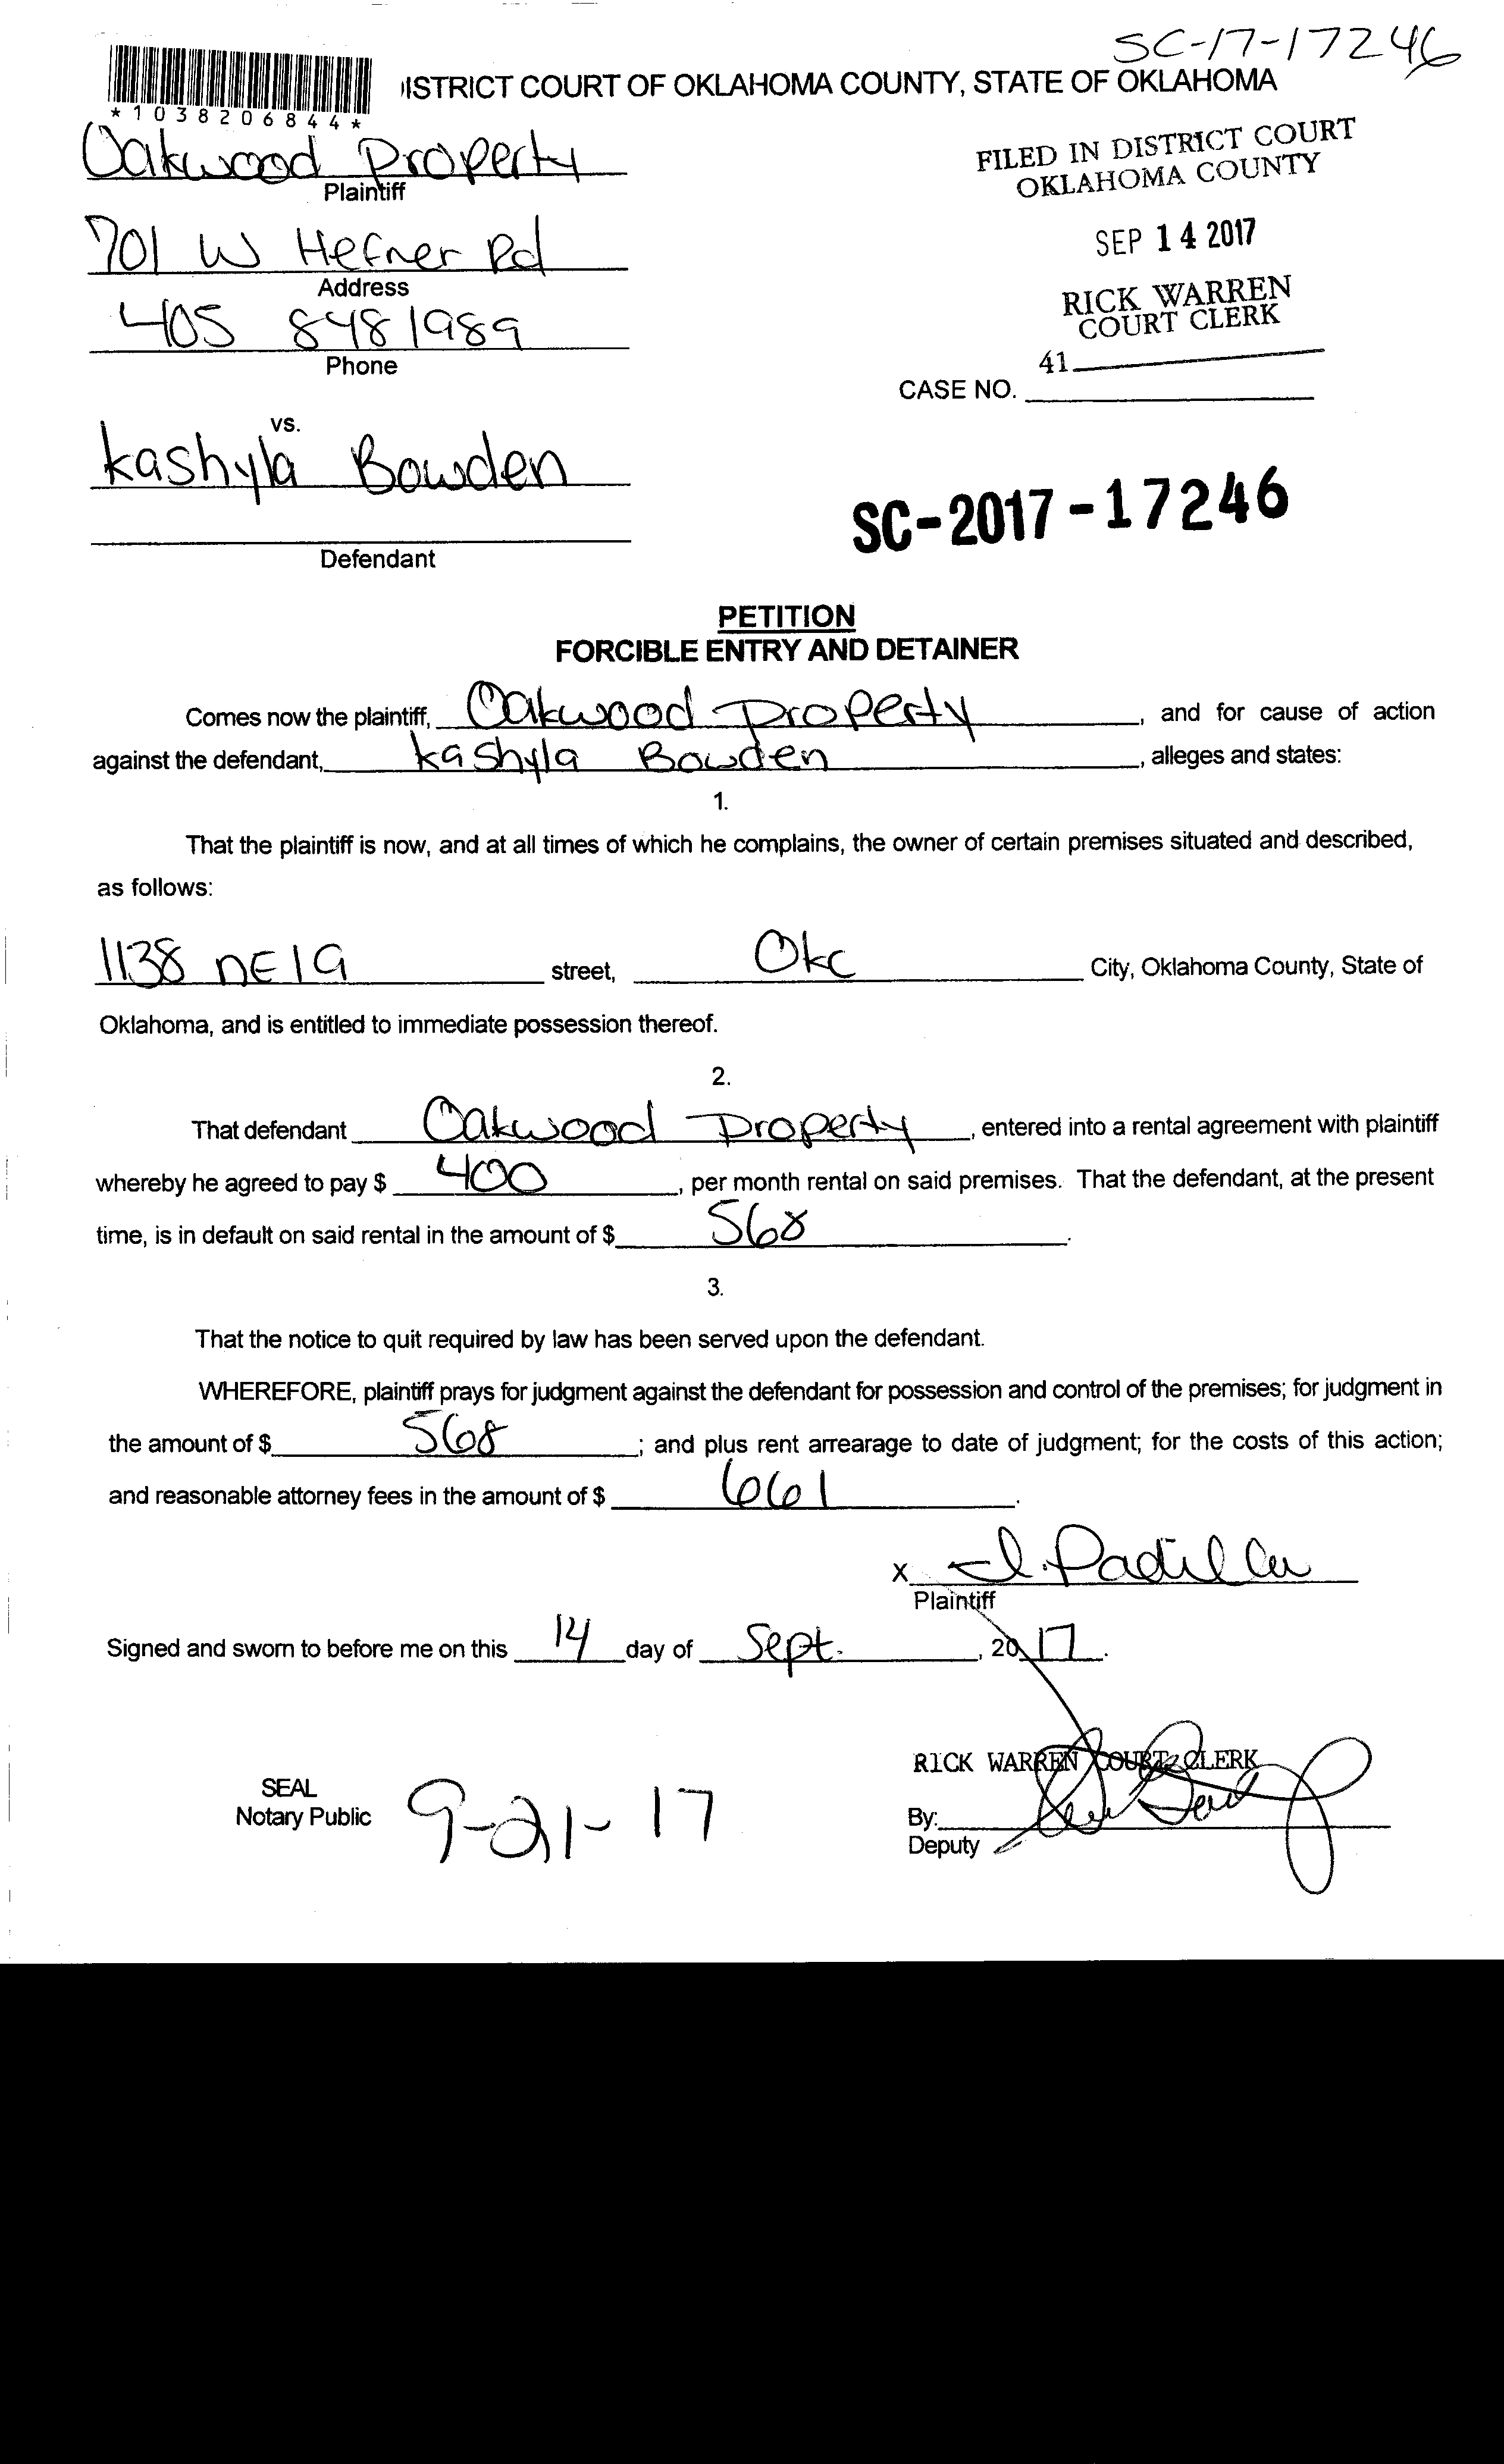 SC-17-17246
ISTRICT COURT OF OKLAHOMA COUNTY, STATE OF OKLAHOMA
*1038206844*
Oakwood Property
Plaintiff
FILED IN DISTRICT COURT
OKLAHOMA COUNTY
701 W Hefner Rd
Address
SEP 14 2017
405 848 1989
Phone
RICK WARREN
COURT CLERK
41
CASE NO.
vs.
kashyla Bowden
Defendant
SC-2017-17246
PETITION
FORCIBLE ENTRY AND DETAINER
Comes now the plaintiff, Oakwood Property, and for cause of action
against the defendant, kashyla Bowden, alleges and states:
1.
That the plaintiff is now, and at all times of which he complains, the owner of certain premises situated and described,
as follows:
1138 NE 19 street, Okc City, Oklahoma County, State of
Oklahoma, and is entitled to immediate possession thereof.
2.
That defendant Oakwood Property, entered into a rental agreement with plaintiff
whereby he agreed to pay $ 400, per month rental on said premises. That the defendant, at the present
time, is in default on said rental in the amount of $ 568.
3.
That the notice to quit required by law has been served upon the defendant.
WHEREFORE, plaintiff prays for judgment against the defendant for possession and control of the premises; for judgment in
the amount of $ 568; and plus rent arrearage to date of judgment; for the costs of this action;
and reasonable attorney fees in the amount of $ 661.
X I. Padilla
Plaintiff
Signed and sworn to before me on this 14 day of Sept., 2017.
RICK WARREN COURT CLERK
SEAL
Notary Public
9-21-17
By:
Deputy